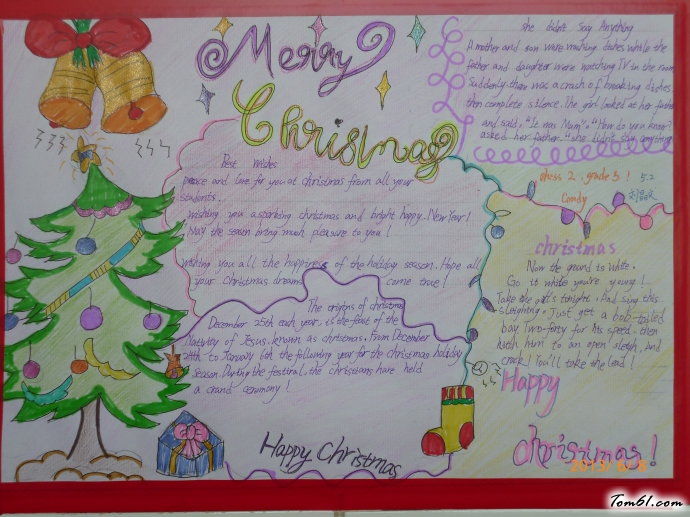 Merry
Christmas
she didn't Say Anything
A mother and son were washing dishes while the
father and daughter were watching TV in the room.
Suddenly there was a crash of breaking dishes,
then complete silence. The girl looked at her father
and said, "It was Mum". "How do you know?"
asked her father. "she didn't say anything
class 2, grade 5! 5.2
Candy
Best Wishes
peace and love for you at christmas from all your
students.
wishing you a sparking christmas and bright happy New Year!
May the season bring much pleasure to you!
wishing you all the happiness of the holiday season. Hope all
your Christmas dreams come true!
The origins of christmas
December 25th each year, is the feast of the
Nativity of Jesus, known as christmas. From December
24th to January 6th the following year for the christmas holiday
season. During the festival, the christians have held
a grand ceremony!
Happy Christmas
christmas
Now the ground is white.
Go it while you're young!
Take the girls tonight. And sing this
sleighing. Just get a bob-tailed
bay Two-forty for his speed. then
hitch him to an open sleigh, And
crack! You'll take the lead!
Happy
christmas!
Tom61.com